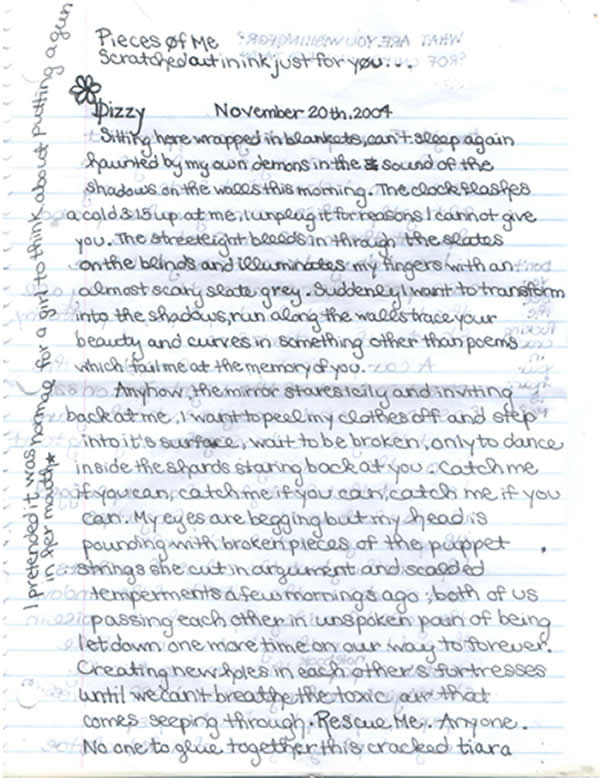 Pieces Øf Me
Scratched out in ink just for yøu...
Dizzy November 20th, 2004
Sitting here wrapped in blankets, can't sleep again
haunted by my own demons in the sound of the
shadows on the walls this morning. The clock flashes
a cold 3:15 up at me, I unplug it for reasons I cannot give
you. The streetlight bleeds in through the slates
on the blinds and illuminates my fingers with an
almost scary slate grey. Suddenly I want to transform
into the shadows, run along the walls trace your
beauty and curves in something other than poems
which fail me at the memory of you.
Anyhow, the mirror stares icily and inviting
back at me, I want to peel my clothes off and step
into it's surface, wait to be broken, only to dance
inside the shards staring back at you. Catch me
if you can, catch me if you can, catch me if you
can. My eyes are begging but my head is
pounding with broken pieces of the puppet
strings she cut in argument and scalded
temperments a few mornings ago; both of us
passing each other in unspoken pain of being
let down one more time on our way to forever.
Creating new holes in each other's fortresses
until we can't breathe the toxic air that
comes seeping through. Rescue. Me. Anyone.
No one to glue together this cracked tiara
I pretended it was normal for a girl to think about putting a gun
in her mouth